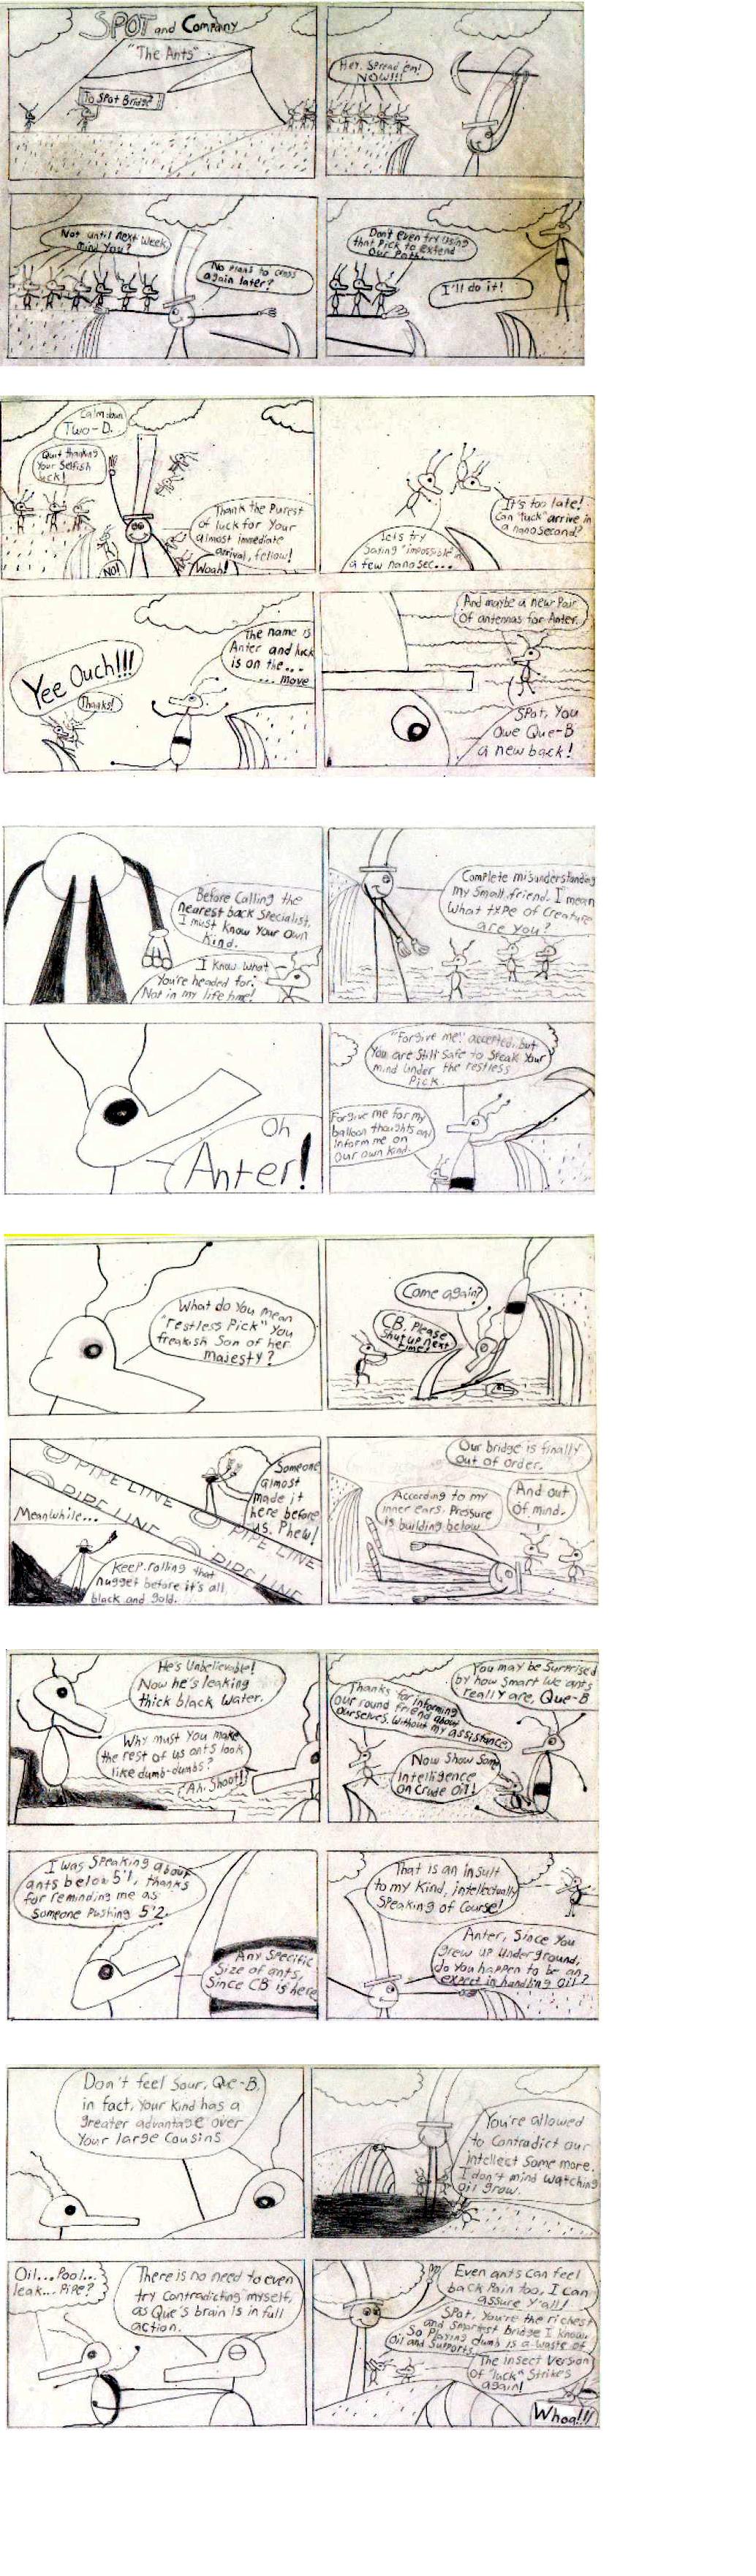 SPOT and Company
"The Ants"
To Spot Bridge
Hey, Spread 'em!
NOW!!!
Not until next week,
mind you?
No plans to cross
again later?
Don't even try using
that Pick to extend
our Path.
I'll do it!
Calm down
Two-D.
Quit thanking
Your Selfish
luck!
Thank the Purest
of luck for Your
almost immediate
arrival, fellow!
NO!
Woah!
It's too late!
Can "luck" arrive in
a nanosecond?
Lets try
Saying "impossible" in
a few nanosec...
Yee Ouch!!!
Thanks!
The name is
Anter and luck
is on the...
... move
And maybe a new Pair
of antennas for Anter.
Spot, You
owe Que-B
a new back!
Before Calling the
nearest back Specialist,
I must know Your Own
kind.
I know what
You're headed for.
Not in my life time!
Complete misunderstanding
my Small friend. I mean
What type of Creature
are you?
Oh
Anter!
"Forgive me!" accepted, but
You are Still Safe to Speak Your
mind Under the restless
Pick.
Forgive me for my
balloon thoughts and
inform me on
Our own kind.
What do You mean
"restless Pick" You
freakish Son of her
majesty?
Come again?
CB, Please
Shut up next
time!
PIPE LINE
PIPE LINE
PIPE LINE
PIPE LINE
Someone
almost
made it
here before
us. Phew!
Meanwhile...
Keep rolling that
nugget before it's all
black and gold.
Our bridge is finally
Out of order.
According to my
inner ears, Pressure
is building below.
And out
Of mind.
He's Unbelievable!
Now he's leaking
thick black Water.
Why must You make
the rest of us ants look
like dumb-dumbs?
(Ah, Shoot!)
You may be Surprised
by how Smart We ants
really are, Que-B
Thanks for informing
Our round friend about
Ourselves. Without my assistance
Now Show Some
Intelligence
On Crude Oil!
I was Speaking about
ants below 5'1, thanks
for reminding me as
Someone Pushing 5'2.
Any Specific
Size of ants,
Since CB is here
That is an insult
to my Kind, intellectually
Speaking of Course!
Anter, Since You
grew up Underground,
do You happen to be an
expert in handling Oil?
Don't feel Sour, Que-B,
in fact, Your kind has a
greater advantage over
Your large Cousins
You're allowed
to Contradict our
intellect Some more.
I don't mind watching
oil grow.
Oil...Pool...
leak...Pipe?
There is no need to even
try Contradicting myself,
as Que's brain is in full
action.
Even ants Can feel
back Pain too, I can
assure Y'all!
Spot, You're the richest
and Smartest bridge I know.
So Playing dumb is a waste of
Oil and Supports.
The insect Version
Of "luck" Strikes
again!
Whoa!!!